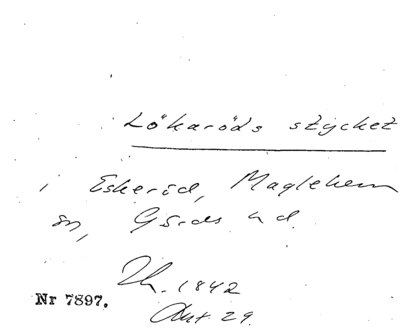 Lökaröds stycket
i Eskeröd, Maglehem
sn, Gärds hd.
Th. 1842
Akt 29.
Nr 7897.